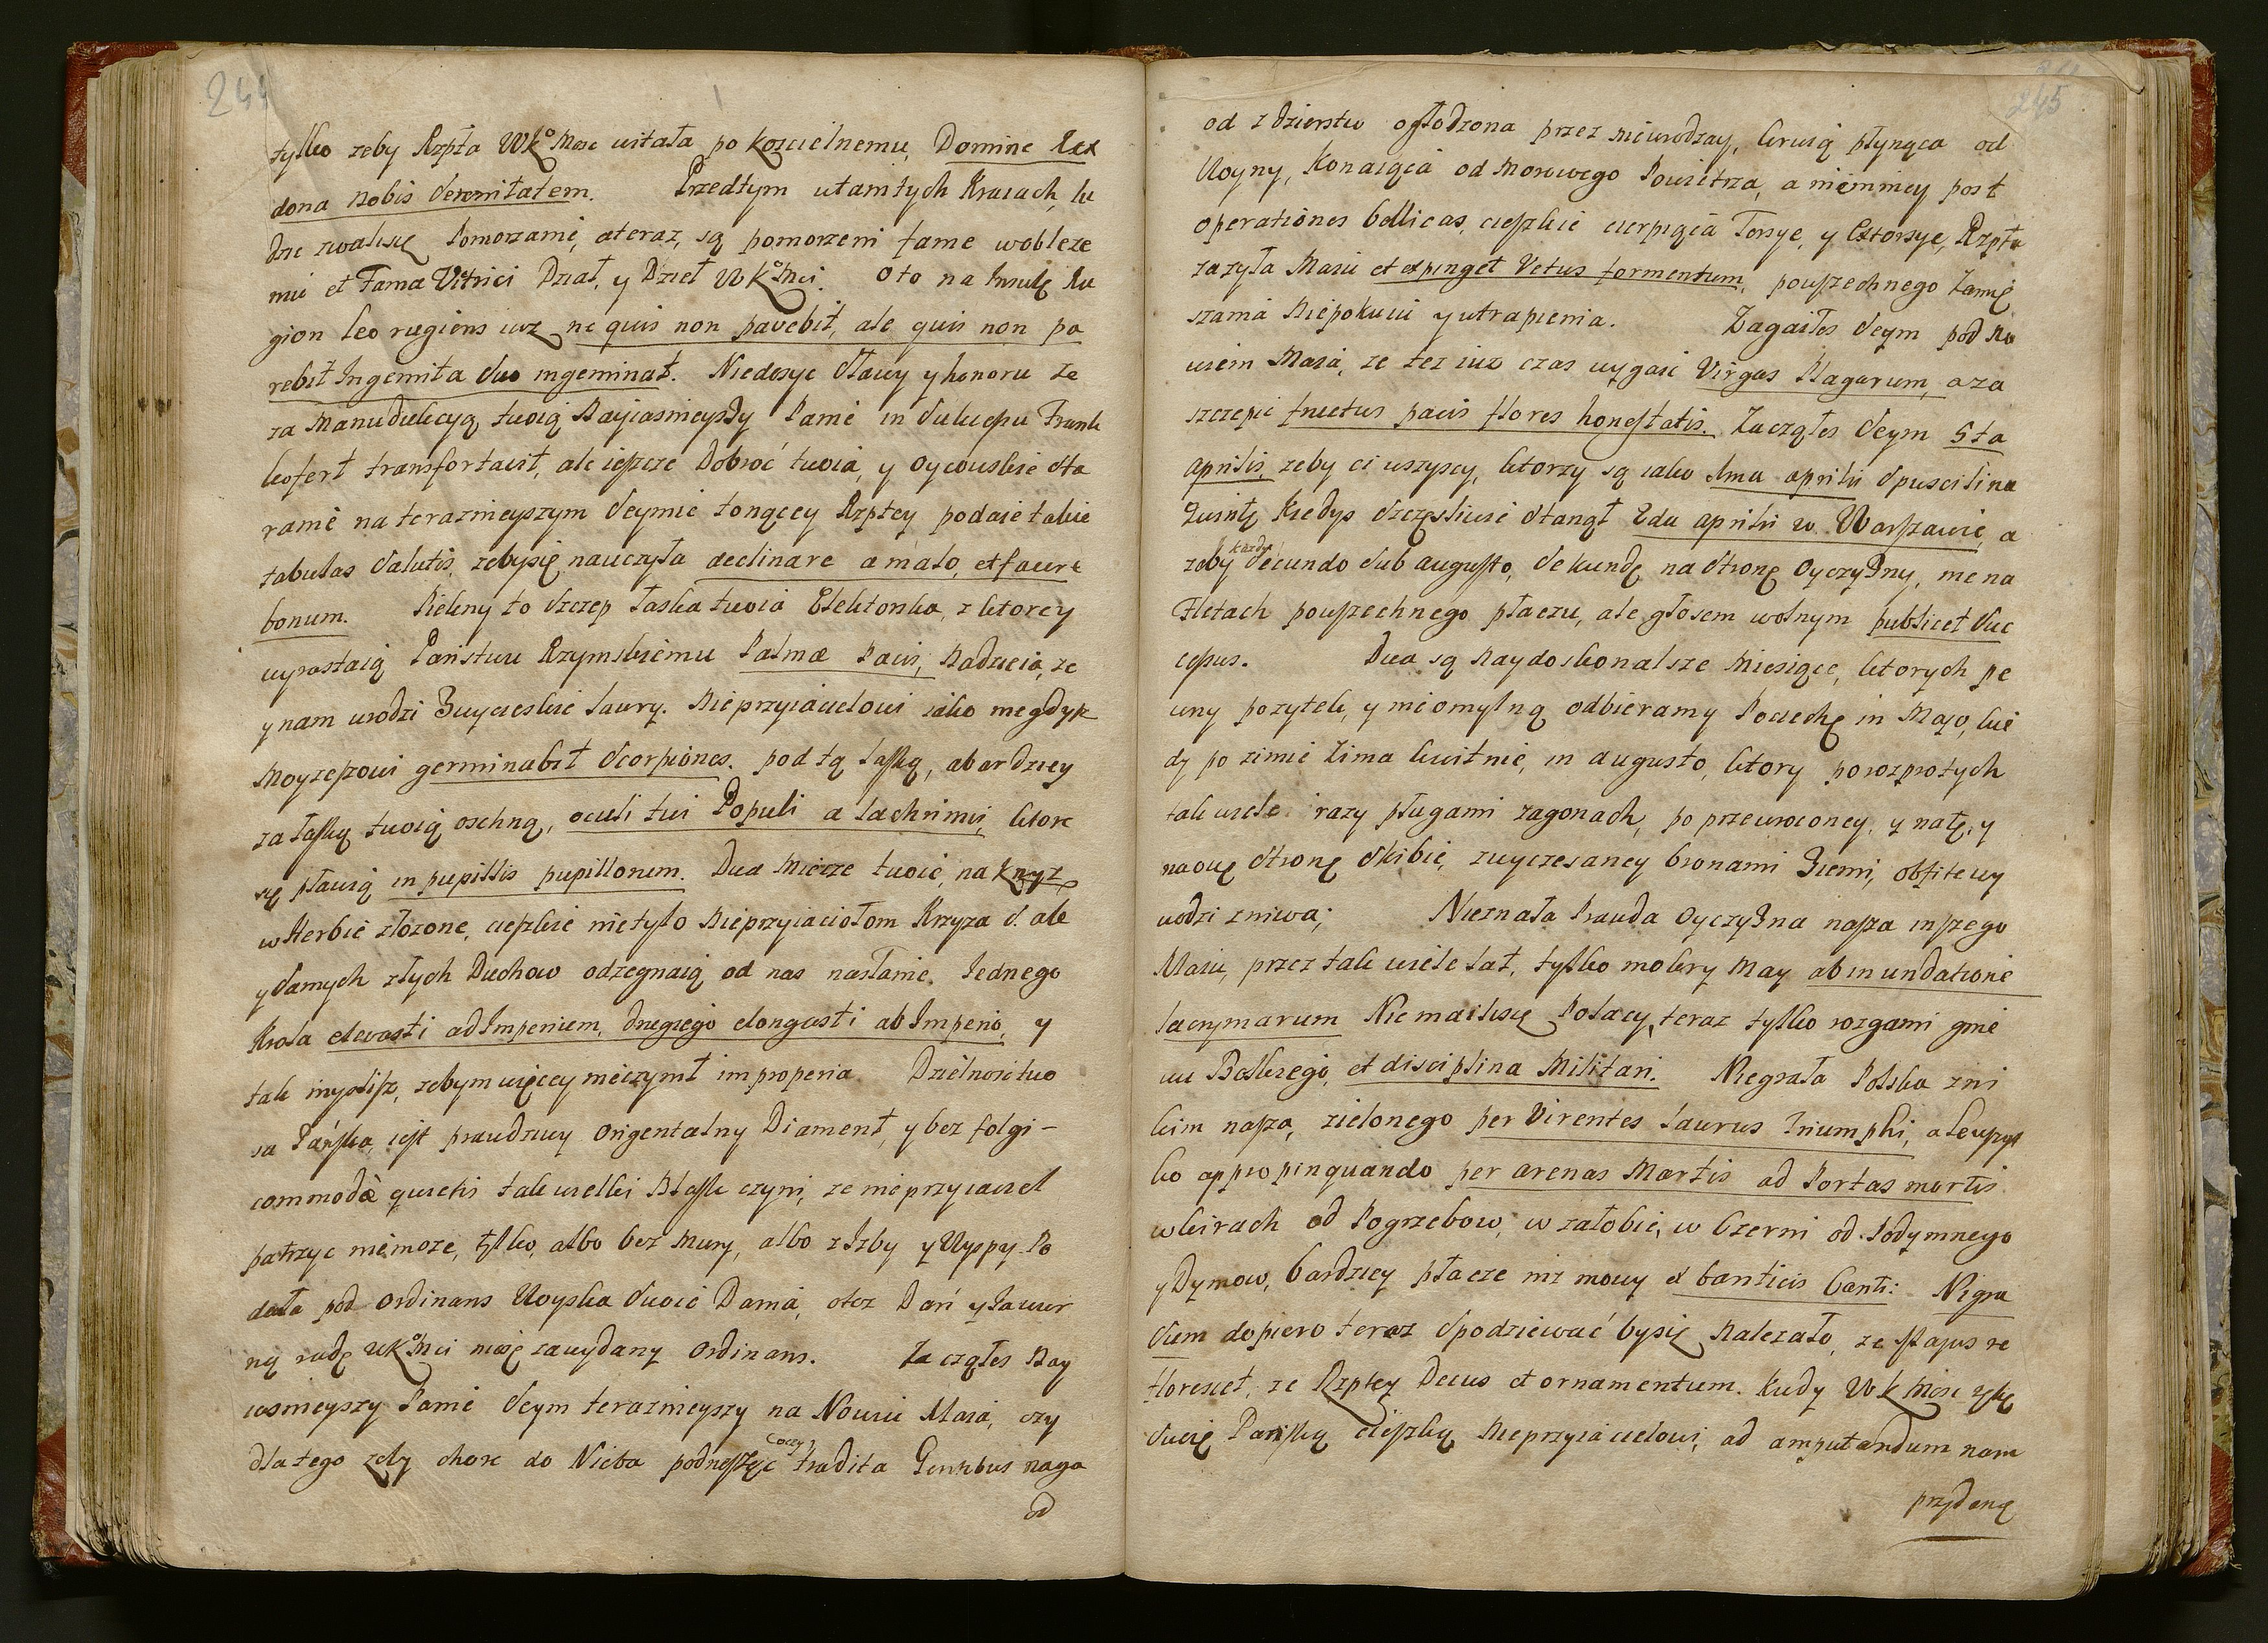 244
tylko zeby Rzpta WKo Mosc witała po koscielnemu, Domine Rex
dona nobis serenitatem. Przedtym wtamtych Kraiach, lu
dzie zwalisię Pomorzanie, ateraz, są pomorzeni fame wobleze
niu et Fama Victrici Dział, y Dzieł WKoMci. Oto na Insulę Ru
gion leo rugiens iuz ne quis non pavebit, ale quis non pa
rebit Ingemita suo ingeminat. Niedosyc sławy y honoru ze
za Manudukcyą twoią Nayiasnieyszy Panie in suluepu Frank
kofert transfortavit, ale ieszcze Dobroć twoia, y oycowskie sta
ranie na terazmieyszym seymie tonącey Rzptey podaie takie
tabulas salutis, zebysię nauczyła declinare a malo, et facere
bonum. Piekny to szczep łaska twoia Elektorska, z ktorey
wyrastaią Państwu Rzymskiemu Palmæ Pacis, Nadzieia, ze
y nam urodzi Zwycieskie laury. Nieprzyiacielowi iako niegdys
Moyzeszowi germinabit scorpiones. pod tą laską, abardziey
za łaską twoią oschną, oculi tui Populi a lachrimis, ktore
się pławią in pupillis pupillorum. Dwa Miecze twoie, na krzyz
w Herbie złozone, cieszkie nietylo Nieprzyiaciołom Krzyza S. ale
y samych złych Duchow odzegnaią od nas nasłanie. Iednego
Krola elevasti ad Imperium, drugiego elongasti ab Imperio, y
tak myslisz, zebym więcey nieczynił improperia. Dzielnosc two
ia Pańska, iest prawdziwy Orientalny Diament, y bez folgi-
commodæ quietis tak wielki Blask czyni, ze nieprzyiaciel
patrzyc niemoze, tylko, albo bez Mury, albo z Izby y Wyspy. Po
dała pod ordinans Woyska swoie Dania, otoz Dań y Pawier
ną radę WKoMci masię zawydany Ordinans. Zacząłes Nay
iasnieyszy Panie seym terazmieyszy na Nowiu Maia, czy
dlatego zeby chore do Nieba podnieszc oczy tradita Gentibus naga
od
245
od zdzierstw ogłodzona przez nieurodzay, krwią płynąca od
Woyny, Konaiąca od Morowego Powietrza, a niemniey post
operationes bellicas, cieszkie cierpiąca Torsye, y Extorsye, Rzpta
zazyła Maiu et expinget Vetus formentum, powszechnego Zamię
szania Niepokoiu y utrapienia. Zagaiłes seym pod No
wiem Maia, ze tez iuz czas wygasic Virgas Plagarum, a za
szczepic fructus pacis flores honestatis. Zacząłes Seym 5ta
aprilis, zeby ci wszyscy, ktorzy są iako 1ma aprilii spuscilina
Kwintę Kiedys szczęsliwie stanął 2da aprilii w Warszawie, a
zeby kazdy secundo sub augusto, sekundę na stronę Oyczyzny, nie na
Fletach powszechnego płaczu, ale głosem wolnym publicet suc
cessus. Dwa są naydoskonalsze Miesiące, ktorych pe
wny pozytek, y nieomylną odbieramy Pociechę in Majo, kie
dy po zimie Zima kwitnie, in augusto, ktory porozprotych
tak wiele razy pługami zagonach, po przewroconey y natę, y
naowę stronę skibie, zwyczesaney bronami Ziemi, obfitewy
wodzi zniwa; Nieznała Prawda Oyczyzna nasza inszego
Maiu, przez tak wiele lat, tylko mokry May ab inundatione
lacrymarum Niemailisię Polacy, teraz tylko rozgami gnie
wu Boskiego, et disciplina Militari. Niegrała Polska zni
kim nasza, zielonego per Virentes laurus Triumphi, alewszys
ko appropinquando per arenas Martis ad Portas mortis
wkirach od Pogrzebow, w załobie, w Czerni od Podymnego
y Dymow, bardziey płacze niz mowy et canticis Canti: Nigra
sum dopiero teraz spodziewać bysię nalezało, ze Majus re
florescet, ze Rzptey Decus et ornamentum. Kiedy WK Mosc rękę
swoię Pańską cieszką Nieprzyiacielowi, ad amputandum nam
przydanę